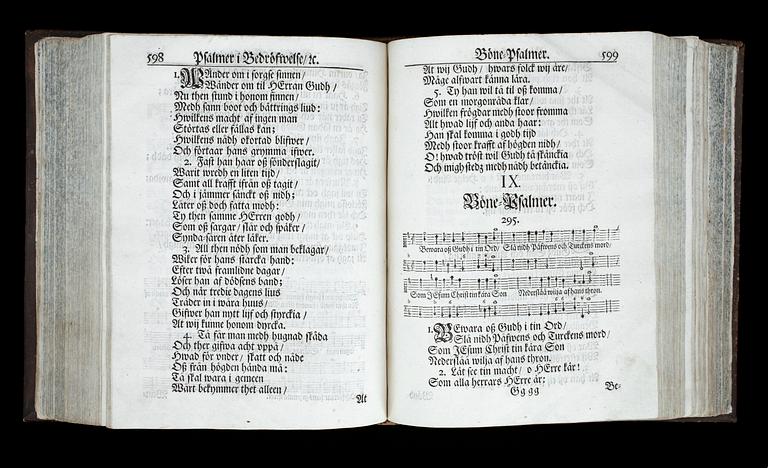 598 Psalmer i Bedröfwelse/ ꝛc.
1. WÅnder om i sorgse sinnen/
Wänder om til HErran Gudh/
Nu then stund i honom finnen/
Medh sann boot och bättrings liud:
Hwilkens macht af ingen man
Störtas eller fällas kan;
Hwilkens nådh okortad blifwer/
Och förtaar hans grymma ifwer.
2. Fast han haar oß sönderslagit/
Warit wredh en liten tijd/
Samt all krafft ifrån oß tagit/
Och i jämmer sänckt oß nidh:
Låter oß doch fatta modh:
Ty then samme HErren godh/
Som oß sargar/ slår och späker/
Synda-såren åter läker.
3. All then nödh som man beklagar/
Wiker för hans starcka hand:
Efter twå framlidne dagar/
Löser han af dödsens band;
Och när tredie dagens lius
Träder in i wåra huus/
Gifwer han nytt lijf och styrckia/
At wij kunne honom dyrcka.
4. Tå får man medh hugnad skåda
Och ther gifwa acht vppå/
Hwad för vnder/ skatt och nåde
Oß från högden hända må:
Tå skal wara i gemeen
Wårt bekymmer thet alleen/
At
Böne-Psalmer. 599
At wij Gudh/ hwars folck wij äre/
Måge alfwart känna lära.
5. Ty han wil tå til oß komma/
Som en morgonråda klar/
Hwilken frögdar medh stoor fromma
Alt hwad lijf och anda haar:
Han skal komma i godh tijd
Medh stoor krafft af högden nidh/
O! hwad tröst wil Gudh tå skänckia
Och migh stedz medh nådh betänckia.
IX.
Böne-Psalmer.
295.
Bewara oß Gudh i tin Ord/ Slå nidh Påfwens och Turckens mord/
Som JEsum Christ tin kära Son Nederslåå wilja af hans thron.
1. BEwara oß Gudh i tin Ord/
Slå nidh Påfwens och Turckens mord/
Som JEsum Christ tin kära Son
Nederslåå wilja af hans thron.
2. Låt see tin macht/ o HErre kär!
Som alla herrars HErre är:
Gg gg Be-